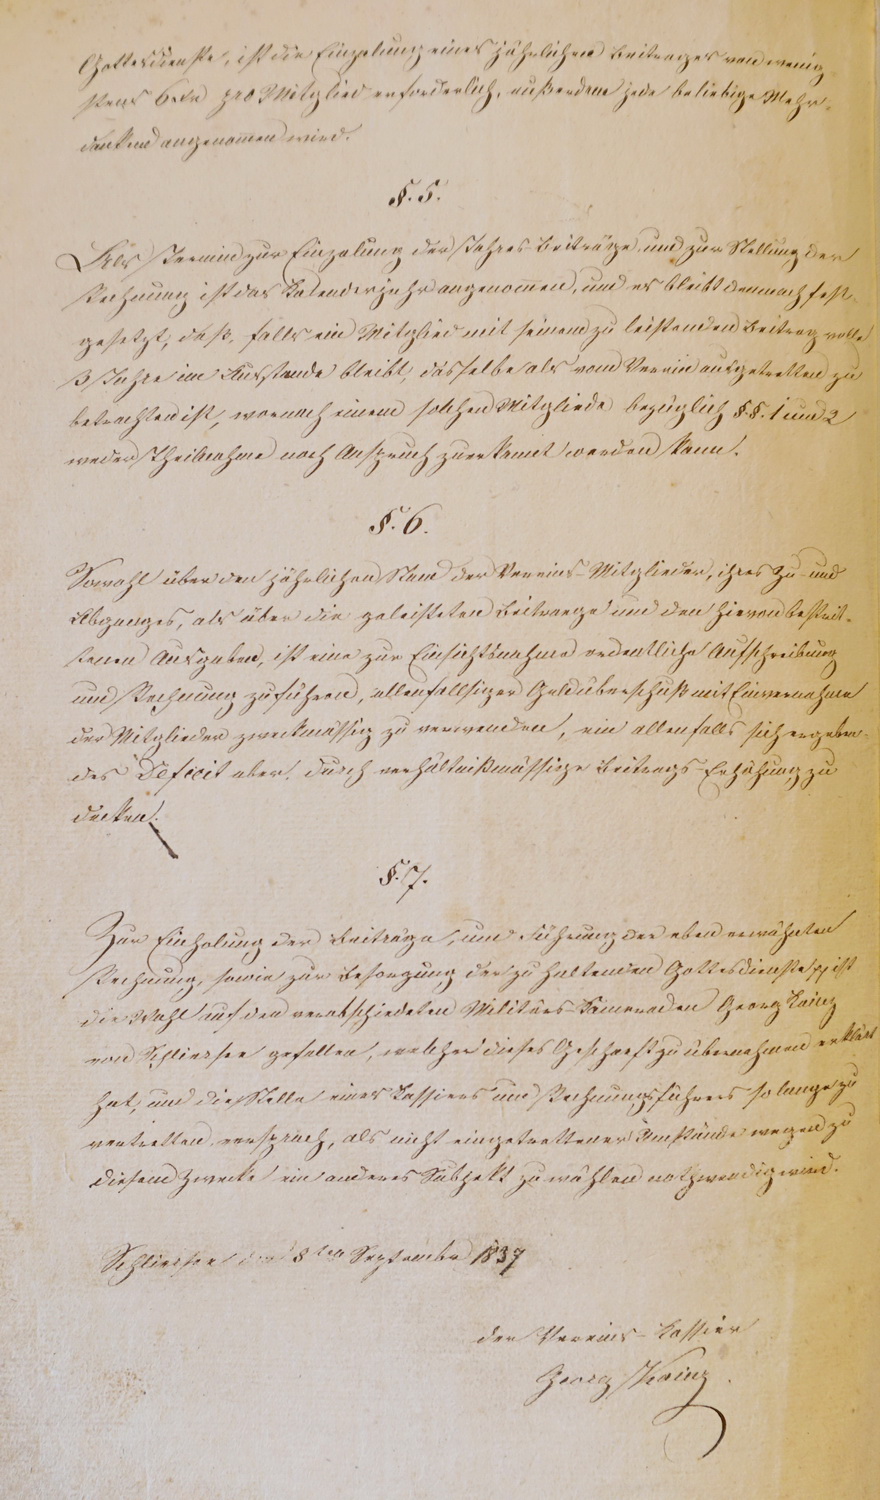 Gottesdienste, ist die Einzalung eines jährlichen Beitrages von wenig
stens 6 xr pro Mitglied erforderlich, außerdem jede beliebige Mehr-
dankend angenommen wird.
§. 5.
Als Termin zur Einzalung der Jahres-Beiträge und zur Stellung der
Rechnung ist das Kalenderjahr angenommen, und es bleibt demnach fest-
gesetzt, daß, falls ein Mitglied mit seinem zu leistenden Beitrag volle
3 Jahre im Ausstande bleibt, dasselbe als vom Verein ausgetretten zu
betrachten ist, wornach einem solchen Mitgliede bezüglich §.§. 1 und 2
weder Theilnahme noch Anspruch zuerkannt werden kann.
§. 6.
Sowohl über den jährlichen Stand der Vereins-Mitglieder, ihres Zu- und
Abganges, als über die geleisteten Beitraege und den hievon bestrit-
tenen Ausgaben, ist eine zur Einsichtsnahme ordentliche Aufschreibung
und Rechnung zu führen, allenfallsiger Geldüberschuß mit Einvernahme
der Mitglieder zweckmässig zu verwenden, ein allenfalls sich ergeben-
des Deficit aber durch verhältnißmässige Beitrags-Erhöhung zu
decken.
§. 7.
Zur Einholung der Beiträge, und Führung der eben erwähnten
Rechnung, sowie zur Besorgung der zu haltenden Gottesdienste ist
die Wahl auf den verabschiedeten Militärs-Kameraden Georg Kainz
von Schliersee gefallen, welcher dieses Geschaeft zu übernehmen erklärt
hat, und die Stelle eines Kassiers und Rechnungsführers so lange zu
vertretten versprach, als nicht eingetrettener Umstände wegen zu
diesem Zwecke ein anderes Subjekt zu wählen nothwendig wird.
Schliersee den 8ten September 1837
der Vereins-Kassier
Georg Kainz.